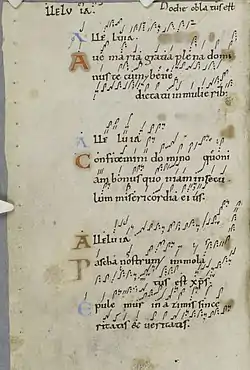 Alle lu ia.
A ve ma ria gratia ple na domi
nus te cum bene
dicta tu in mulie rib;
Alle lu ia
C onfitemini do mino quoni
am bonus quo niam in secu
lum misericordia ei us.
A llelu ia
P ascha nostrum immola
tus est xps
E pule mur in a zimis since
ritatis & veritatis.